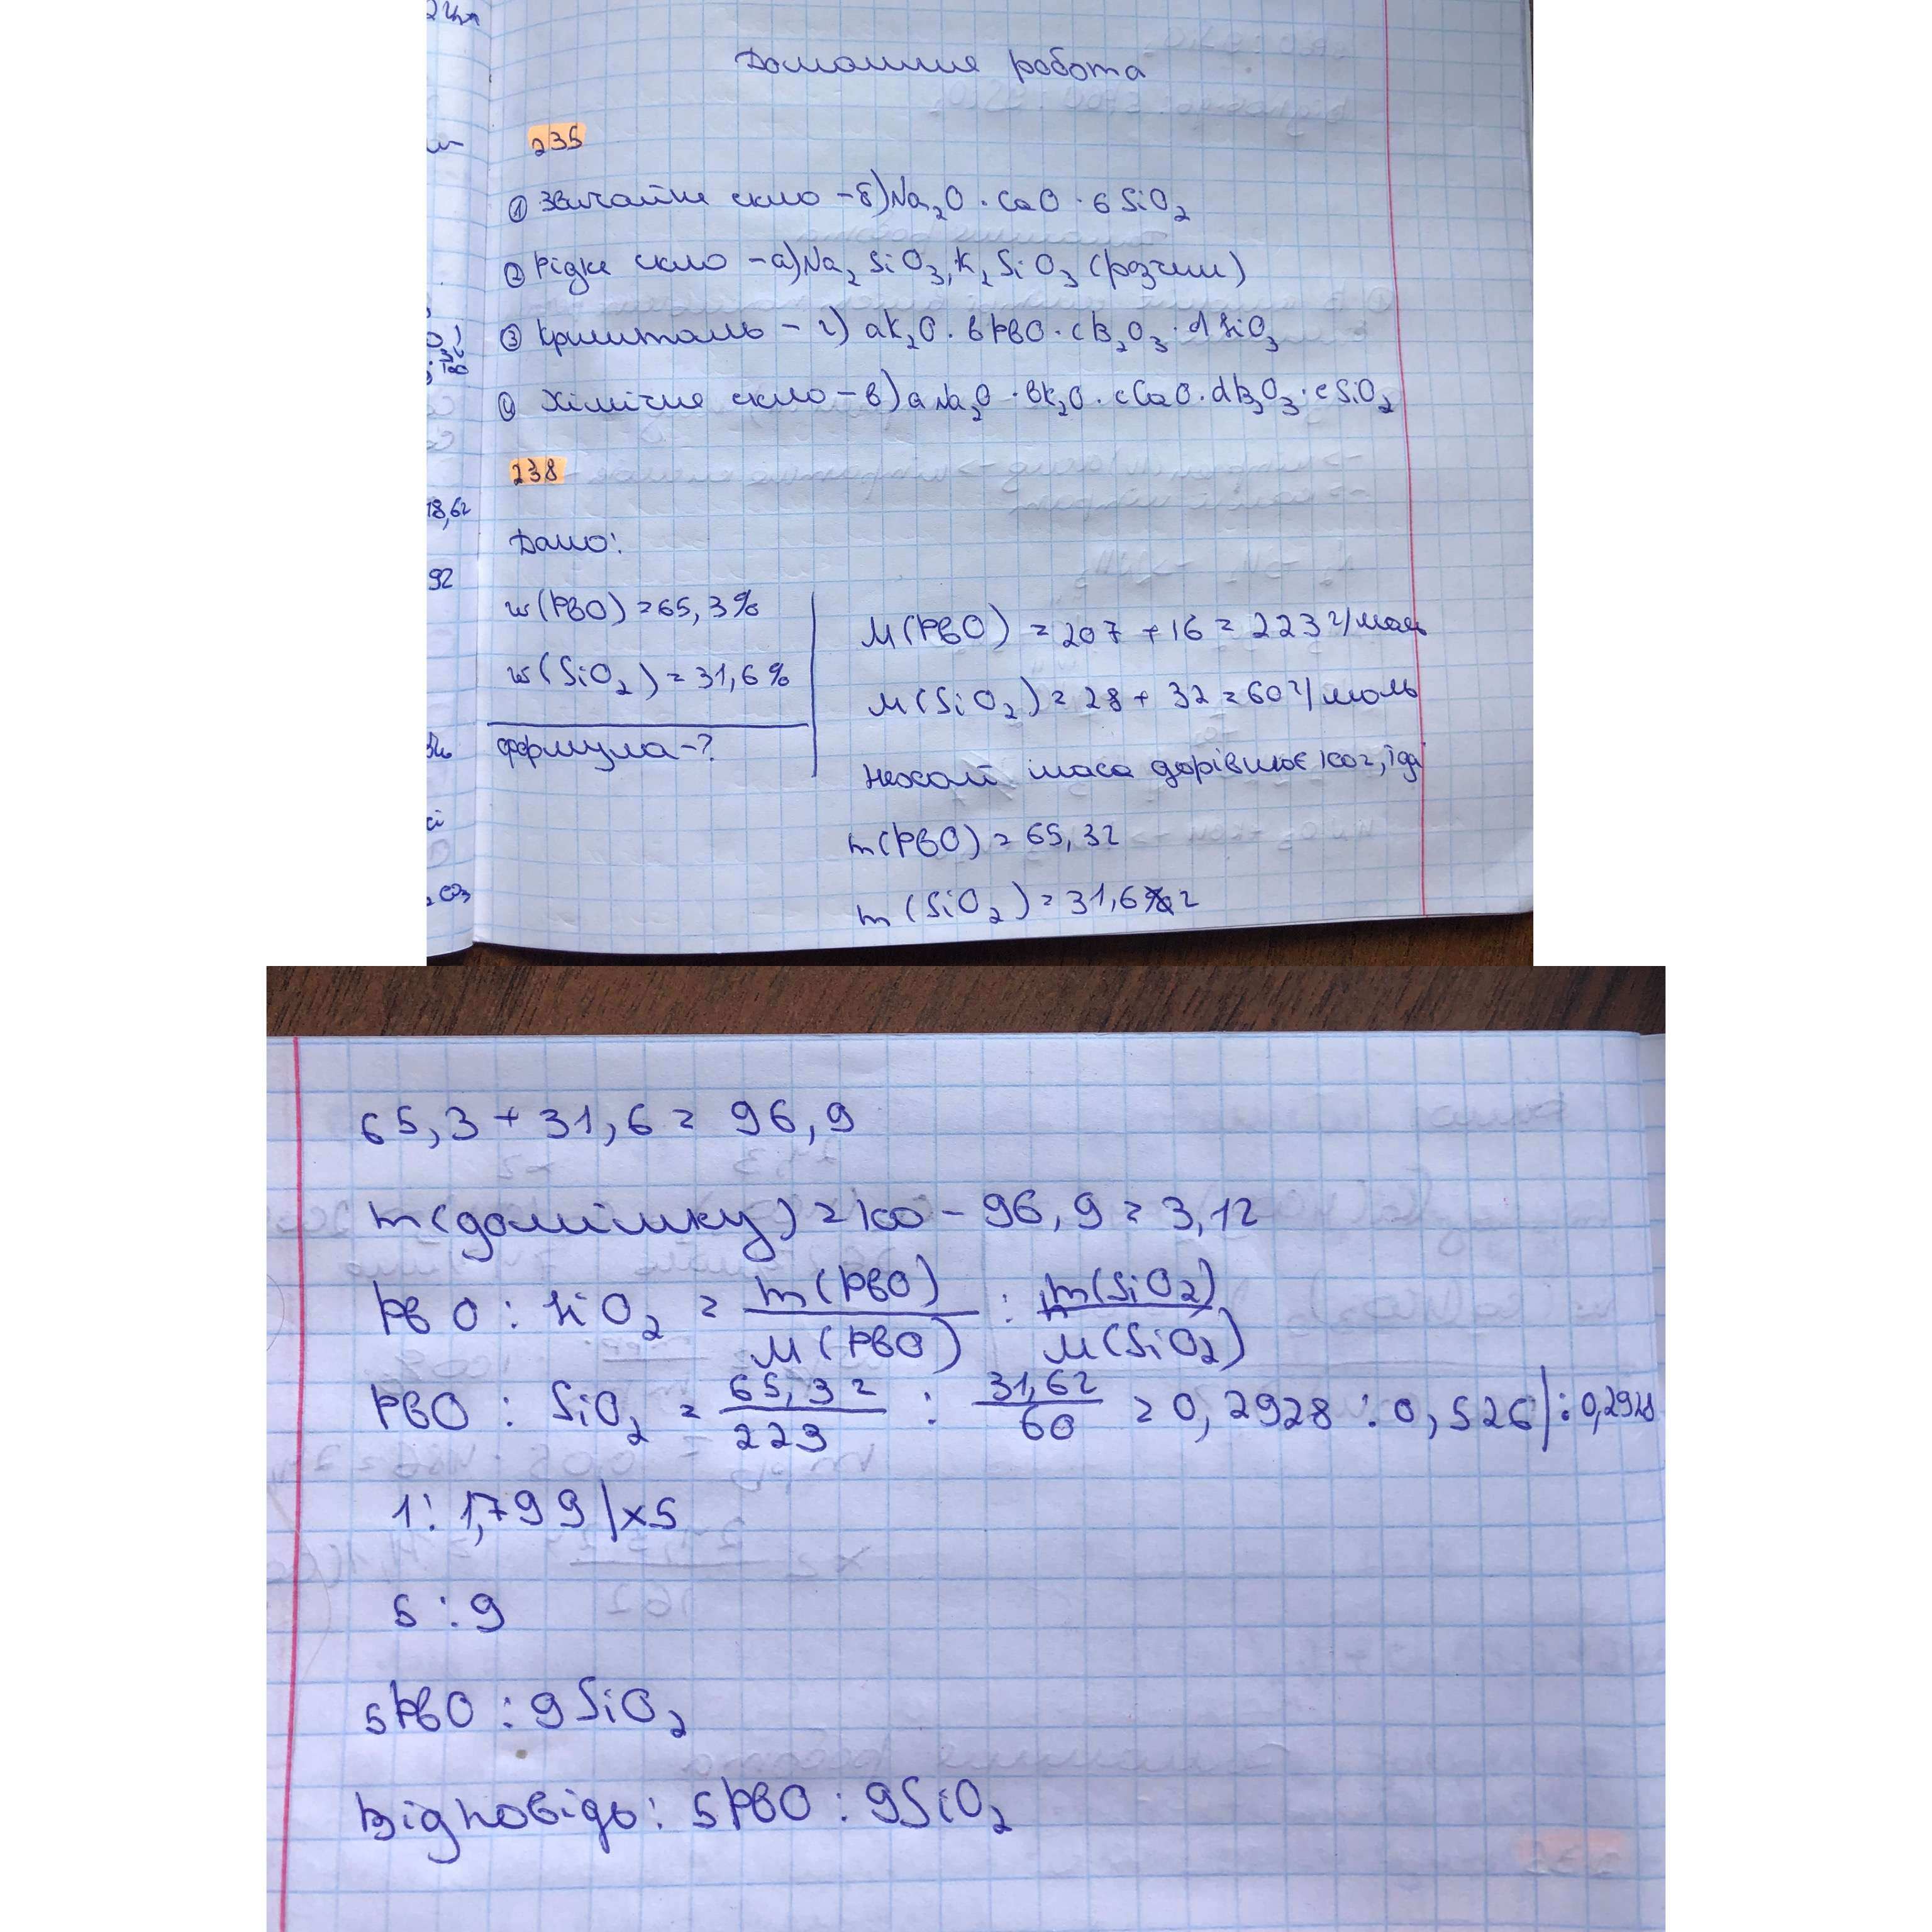 Домашня робота
235
① Звичайне скло – б) Na₂O · CaO · 6 SiO₂
② Рідке скло – а) Na₂ SiO₃, K₂ SiO₃ (розчин)
③ Кришталь – г) aK₂O · bPbO · cB₂O₃ · dSiO₃
④ Хімічне скло – в) a Na₂O · bK₂O · cCaO · dB₂O₃ · eSiO₂
238
Дано:
w(PbO) = 65,3%
w(SiO₂) = 31,6%
формула – ?
M(PbO) = 207 + 16 = 223 г/моль
M(SiO₂) = 28 + 32 = 60 г/моль
Нехай маса дорівнює 100г, тоді
m(PbO) = 65,3г
m(SiO₂) = 31,6 г
18,6г
92
65,3 + 31,6 = 96,9
m(домішку) = 100 – 96,9 = 3,1г
PbO : SiO₂ = m(PbO)/M(PbO) : m(SiO₂)/M(SiO₂)
PbO : SiO₂ = 65,3г/223 : 31,6г/60 = 0,2928 : 0,526 | : 0,2928
1 : 1,799 | ×5
5 : 9
5PbO : 9SiO₂
Відповідь: 5PbO : 9SiO₂